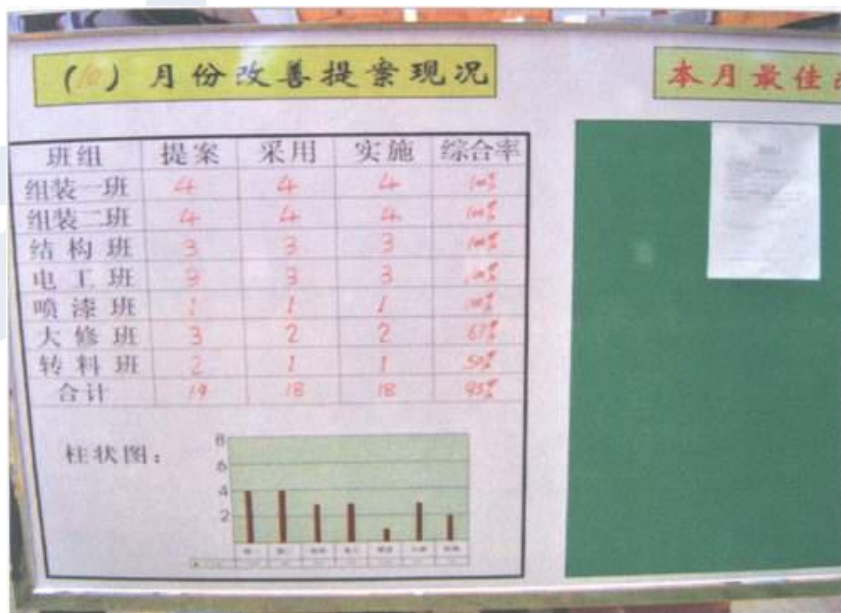 (10) 月份改善提案现况
本月最佳
班组 提案 采用 实施 综合率
组装一班 4 4 4 100%
组装二班 4 4 4 100%
结构班 3 3 3 100%
电工班 3 3 3 100%
喷漆班 1 1 1 100%
大修班 3 2 2 67%
转料班 2 1 1 50%
合计 19 18 18 95%
柱状图：
8
6
4
2